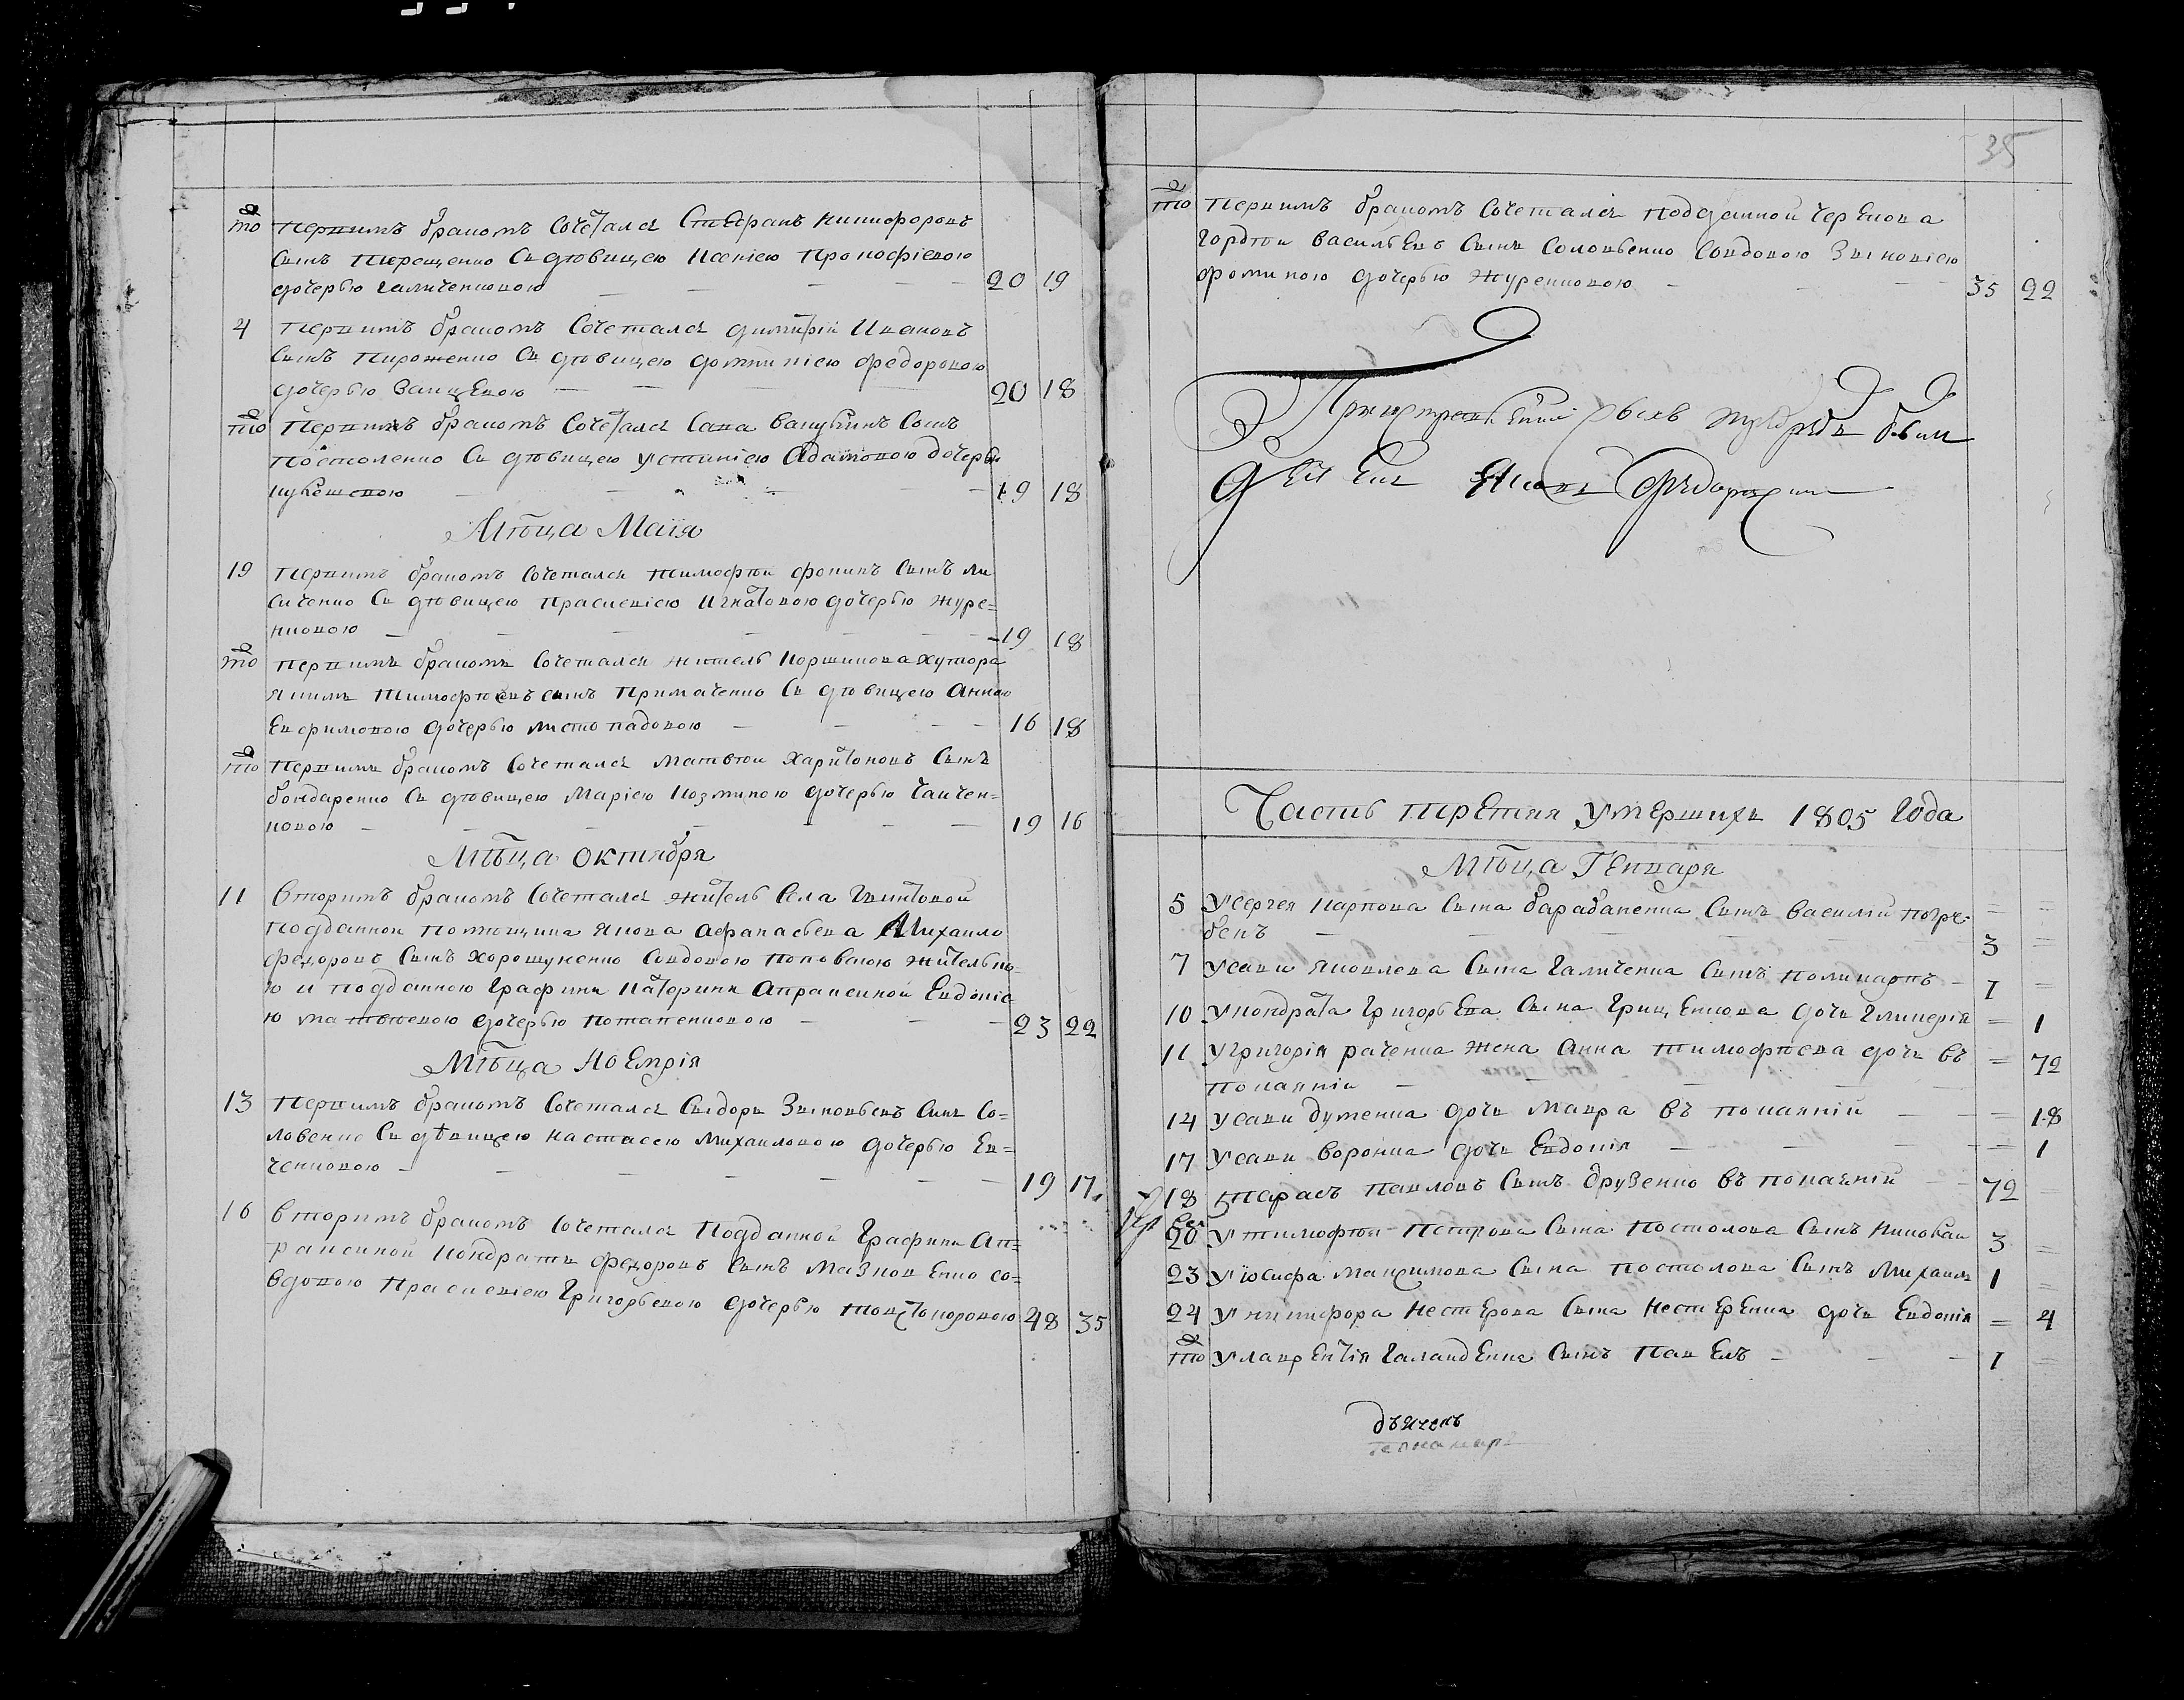 то первимъ бракомъ сочетался Стефанъ никифоровъ
синъ терещенко съ дѣвицею ксениею прокофіевою
дочерью галиченковою 20 19
4 первимъ бракомъ сочетался димитрій Ивановъ
синъ пироженко съ дѣвицею домникіею федоровою
дочерью заицевою 20 18
то первимъ бракомъ сочетался сава вакулинъ синъ
постоленко съ дѣвицею устиніею адамовою дочерью
19 18
Мѣсца Маія
19 первимъ бракомъ сочетался тимофѣй фокинъ синъ ли
сиченко съ дѣвицею праскевіею игнатовою дочерью журе=
нковою 19 18
то первимъ бракомъ сочетался житель коршикова хутора
якимъ тимофѣевъ синъ примаченко съ дѣвицею анною
евфимовою дочерью листопадовою 16 18
то первимъ бракомъ сочетался матвѣй харитоновъ синъ
бондаренко съ дѣвицею маріею козминою дочерью чаичен=
ковою 19 16
Мѣсца октября
11 вторимъ бракомъ сочетался житель села гвинтовой
подданной помющика якова афанасьева Михаило
федоровъ синъ хорошуненко совдовою поповскою жителько=
ю и подданною графини катерини апраксиной Евдокіе
ю матвѣевою дочерью потапенковою 23 22
Мѣсца ноемрія
13 первимъ бракомъ сочетался сидоръ зѣновьевъ синъ со=
ловенко съ дѣвицею настасею михаиловою дочерью Ев=
ченковою 19 17
16 вторимъ бракомъ сочетался подданной графини ап=
раксиной кондратъ федоровъ синъ мазновенко со=
вдовою праскевіею григорьевою дочерью товстопоровою 48 35
35
то первимъ бракомъ сочетался подданной черенова
гордѣй васильевъ синъ соловьенко совдовою зѣновіею
фоминою дочерью журенковою 35 22
Часть третия умершихъ 1805 года
Мѣсца Генваря
5 У сергея карпова сина барабаненка синъ василий погре=
бенъ 3
7 У сави яковлева сина галиченка синъ поликарпъ 1
10 У кондрата григорьева сина гриценкова дочь гликерія 1
11 У григорія раченка жена анна тимофѣева дочь въ 72
покаяніи
14 У сави думенка дочь мавра въ покаяній 18
17 У сави воронка дочь Евдокія 1
18 тарасъ павловъ синъ друзенко въ покаяній 72
20 У тимофѣя петрова сина постолова синъ никовай 3
23 У іосифа максимова сина постолова синъ михаилъ 1
24 У никифора нестерова сина нестеренка дочь Евдокія 4
то У лаврентія галанденка синъ павелъ 1
дьячекъ